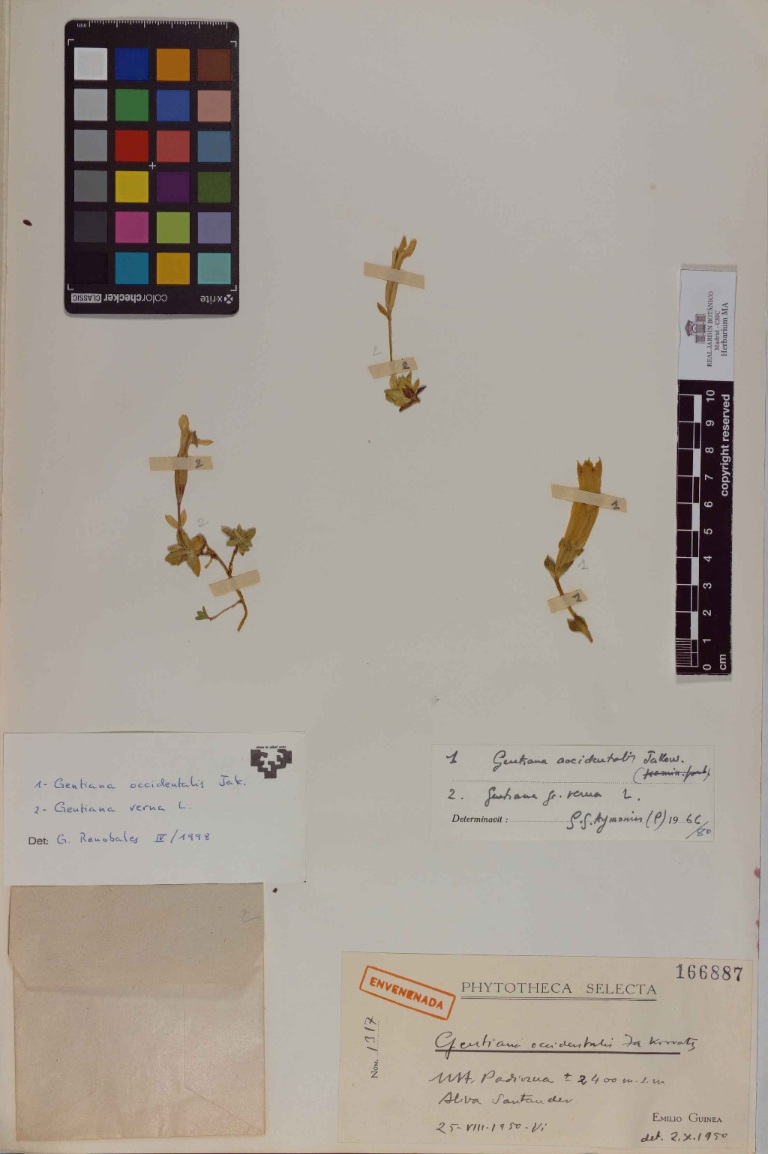 x-rite
colorchecker CLASSIC
mm
REAL JARDÍN BOTÁNICO
Madrid - CSIC
Herbarium MA
copyright reserved
0 1 2 3 4 5 6 7 8 9 10
cm
2
2
2
2
1
1
2
1- Gentiana occidentalis Jak.
2- Gentiana verna L.
Det: G. Renobales IV/1998
1 Gentiana occidentalis Jakow.
2. Gentiana gr. verna L.
Determinavit: G.G. Aymonin (P) 1966
2
166887
ENVENENADA
PHYTOTHECA SELECTA
Num. 1317
Gentiana occidentalis Jakowatz
Mt. Padiorna ± 2400 m.s.m
Aliva Santander
25-VIII-1950-Vi
EMILIO GUINEA
det. 2.X.1950